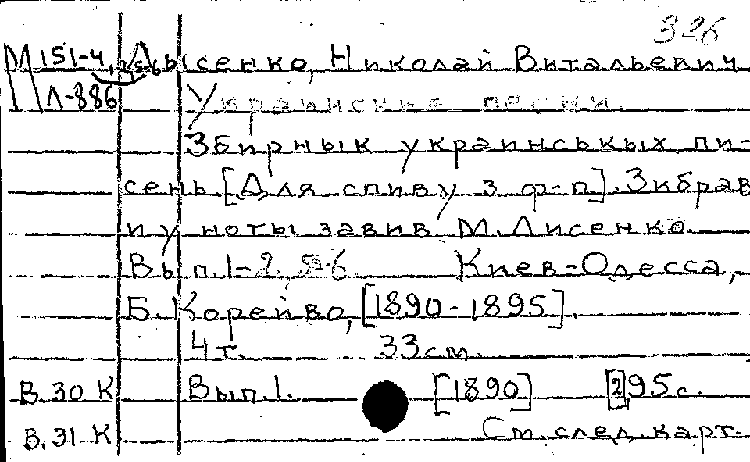 326
М 151-4, Лысенко, Николай Витальевич.
Л-886 Украинские песни.
Збирнык украинськых пи-
сень. [Для спиву з ф-п]. Зибрав
и у ноты завив М. Лисенко.
Вып. 1-2, 5-6 Киев-Одесса,
Б. Корейво, [1890-1895].
4т. 33см.
В.30 К Вып.1. [1890] [2]95с.
В.31 К См. след. карт.